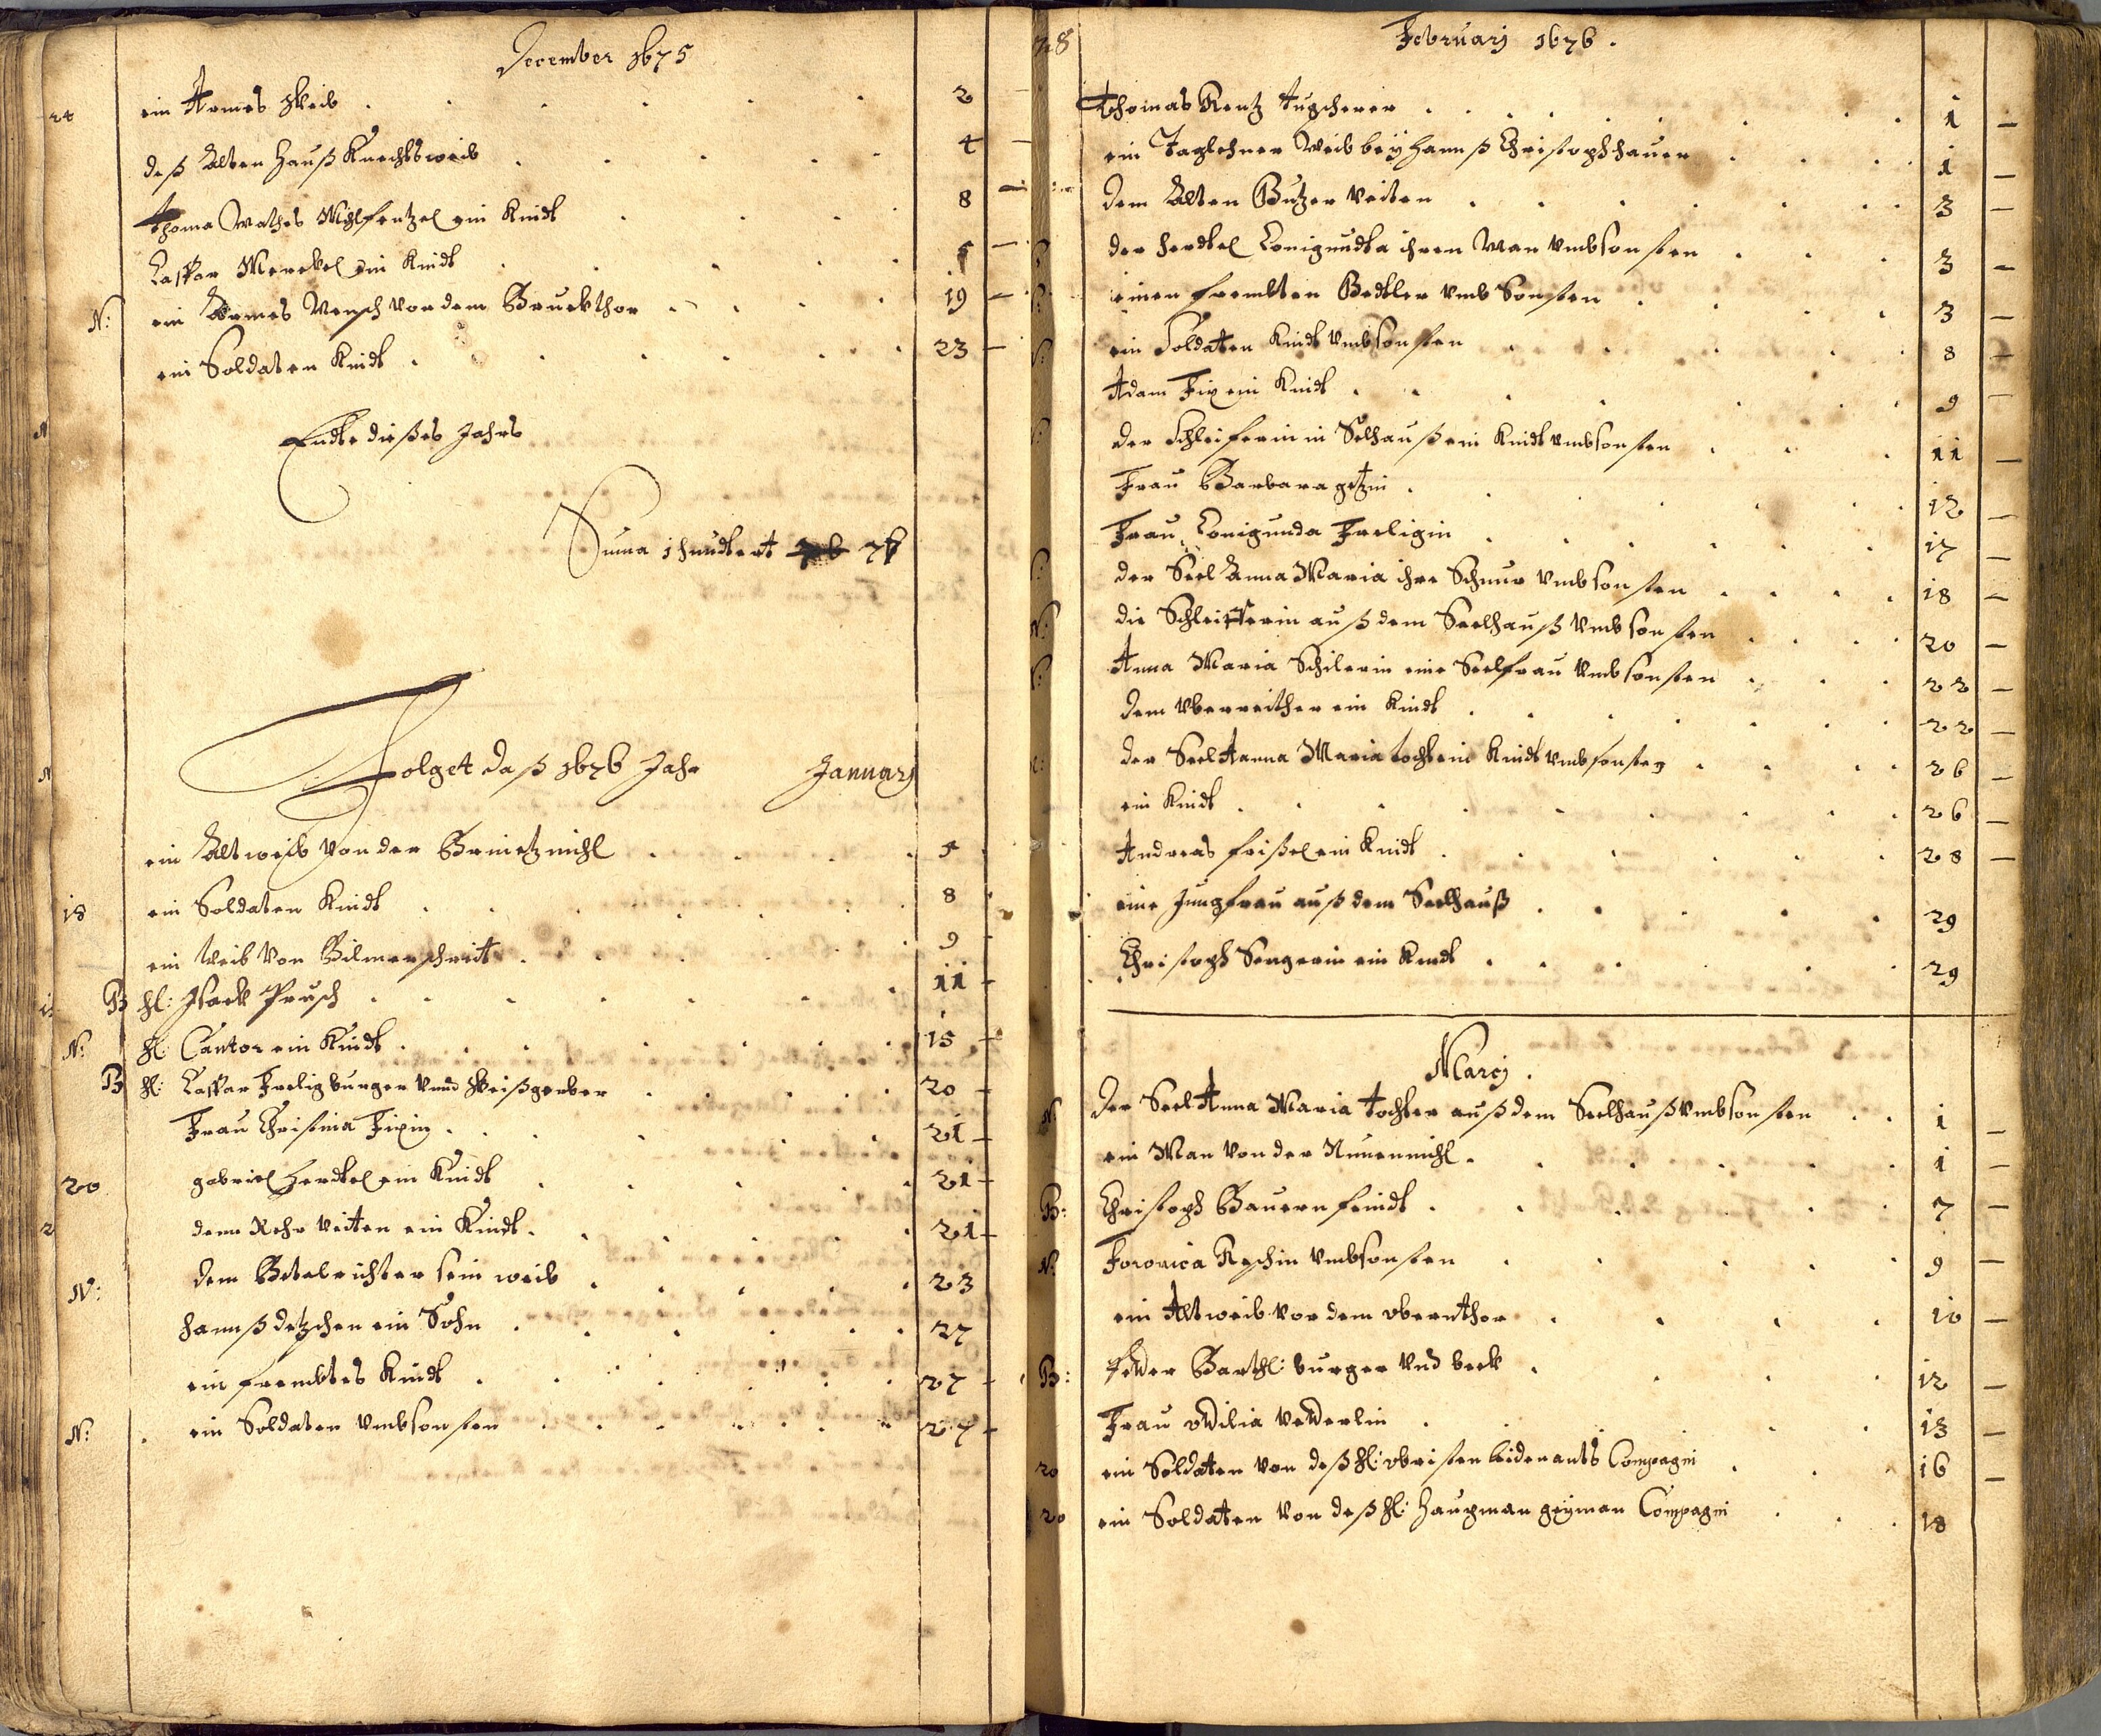 December 1675
24 ein Armes Weib . . . . . . 2
deß Alten Hauß Knechts weib . . . . 4 —
Thoma Mathes ein Kindt . . . 8 —
Caspar Merckel ein Kindt . . . . —
N: ein Armes Mensch vor dem Bruckthor . . . 19 —
ein Soldaten Kindt . . . . . 23 —
Endte dießes Jahrs
Suma 1 hundtert
Folget daß 1676 Jahr Januarj
ein Alt weib von der . . . . 5
18 ein Soldaten Kindt . . . . . 8
ein weib von Bilmerschreit . . . . . 9
B H: Isack Prusch . . . . . . 11 —
N: H: Cantor ein Kindt . . . . . . 15 —
B H: Caspar Frelig burger vnnd Weißgerber . . . . 20 —
Frau Christina Fixin . . . . 21 —
20 gabriel Herdtel ein Kindt . . . . 21 —
dem Rohr Veiten ein Kindt . . . . 21 —
N: dem Betelrichter sein weib . . . . . 23
Hannß ein Sohn . . . . . 27
ein frembtes Kindt . . . . . 27 —
N: ein Soldaten vmbsonsten . . . . . 27 —
Februarj 1676 .
Thomas Rentz tugscherer . . . . . 1 —
ein Taglehner Weib bey Hannß Christoph hauer . . . 1 —
dem Alten Butzer Veiten . . . . . . 3 —
der Herdtel Conigundta ihren Man vmbsonsten . . . 3 —
einen frembten Bedtler vmb Sonsten . . . 3 —
ein Soldaten Kindt vmbsonsten . . . . 8 —
Adam Fix ein Kindt . . . . . . 9 —
der Schleiferin in Selhauß ein Kindt vmbsonsten . . . 11 —
Frau Barbara . . . . . 12 —
Frau Conigunda Freligin . . . . . 17 —
der Seel Anna Maria ihre Schnur vmbsonsten . . . . 18 —
N: die Schleifferin auß dem Seelhauß vmbsonsten . . . . 20 —
Anna Maria Schilerin eine Seelfrau vmbsonsten . . . 22 —
dem vberreither ein Kindt . . . . . . 22 —
der Seel Anna Maria tochter ein Kindt vmbsonsten . . . . 26 —
ein Kindt . . . . . . . 26 —
Andreas frißel ein Kindt . . . . . 28 —
eine Jungfrau auß dem Seelhauß . . . . . 29
Christoph Sengerin ein Kindt . . . . . 29
Marcj .
N. der Seel Anna Maria tochter auß dem Seelhauß vmbsonsten . . 1 —
ein Man von der . . . . . 1 —
B: Christoph Bauernfeindt . . . . . 7 —
N: Foronica vmbsonsten . . . . 9 —
ein Alt weib vor dem obernthor . . . . 10 —
B: Barthl: burger vnd beck . . . . 12 —
Frau Odilia . . . . 13 —
20 ein Soldaten von deß H: obristen leidenants Compagni . . . 16 —
20 ein Soldaten von deß H: Haupman Compagni . . . 18